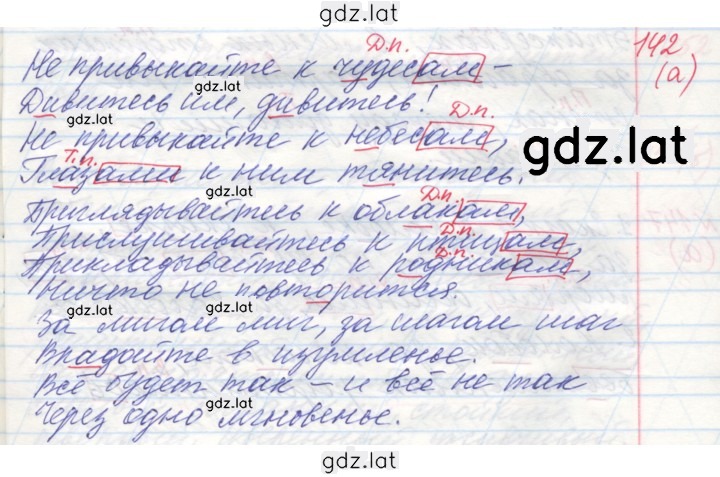 gdz.lat
Д.п. 142
Не привыкайте к чудесам – (а)
gdz.lat
Дивитесь им, дивитесь!
Д.п.
Не привыкайте к небесам,
gdz.lat
Т.п.
Глазами к ним тянитесь.
Д.п.
Приглядывайтесь к облакам,
gdz.lat
Д.п.
Прислушивайтесь к птицам,
Д.п.
Прикладывайтесь к родникам,
Ничто не повторится.
gdz.lat
За мигом миг, за шагом шаг
Впадайте в изумленье.
Всё будет так – и всё не так
gdz.lat
Через одно мгновенье.
gdz.lat